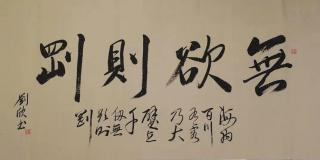 無欲則剛
海納
百川
有容
乃大
壁立
千
仞無
欲則
剛